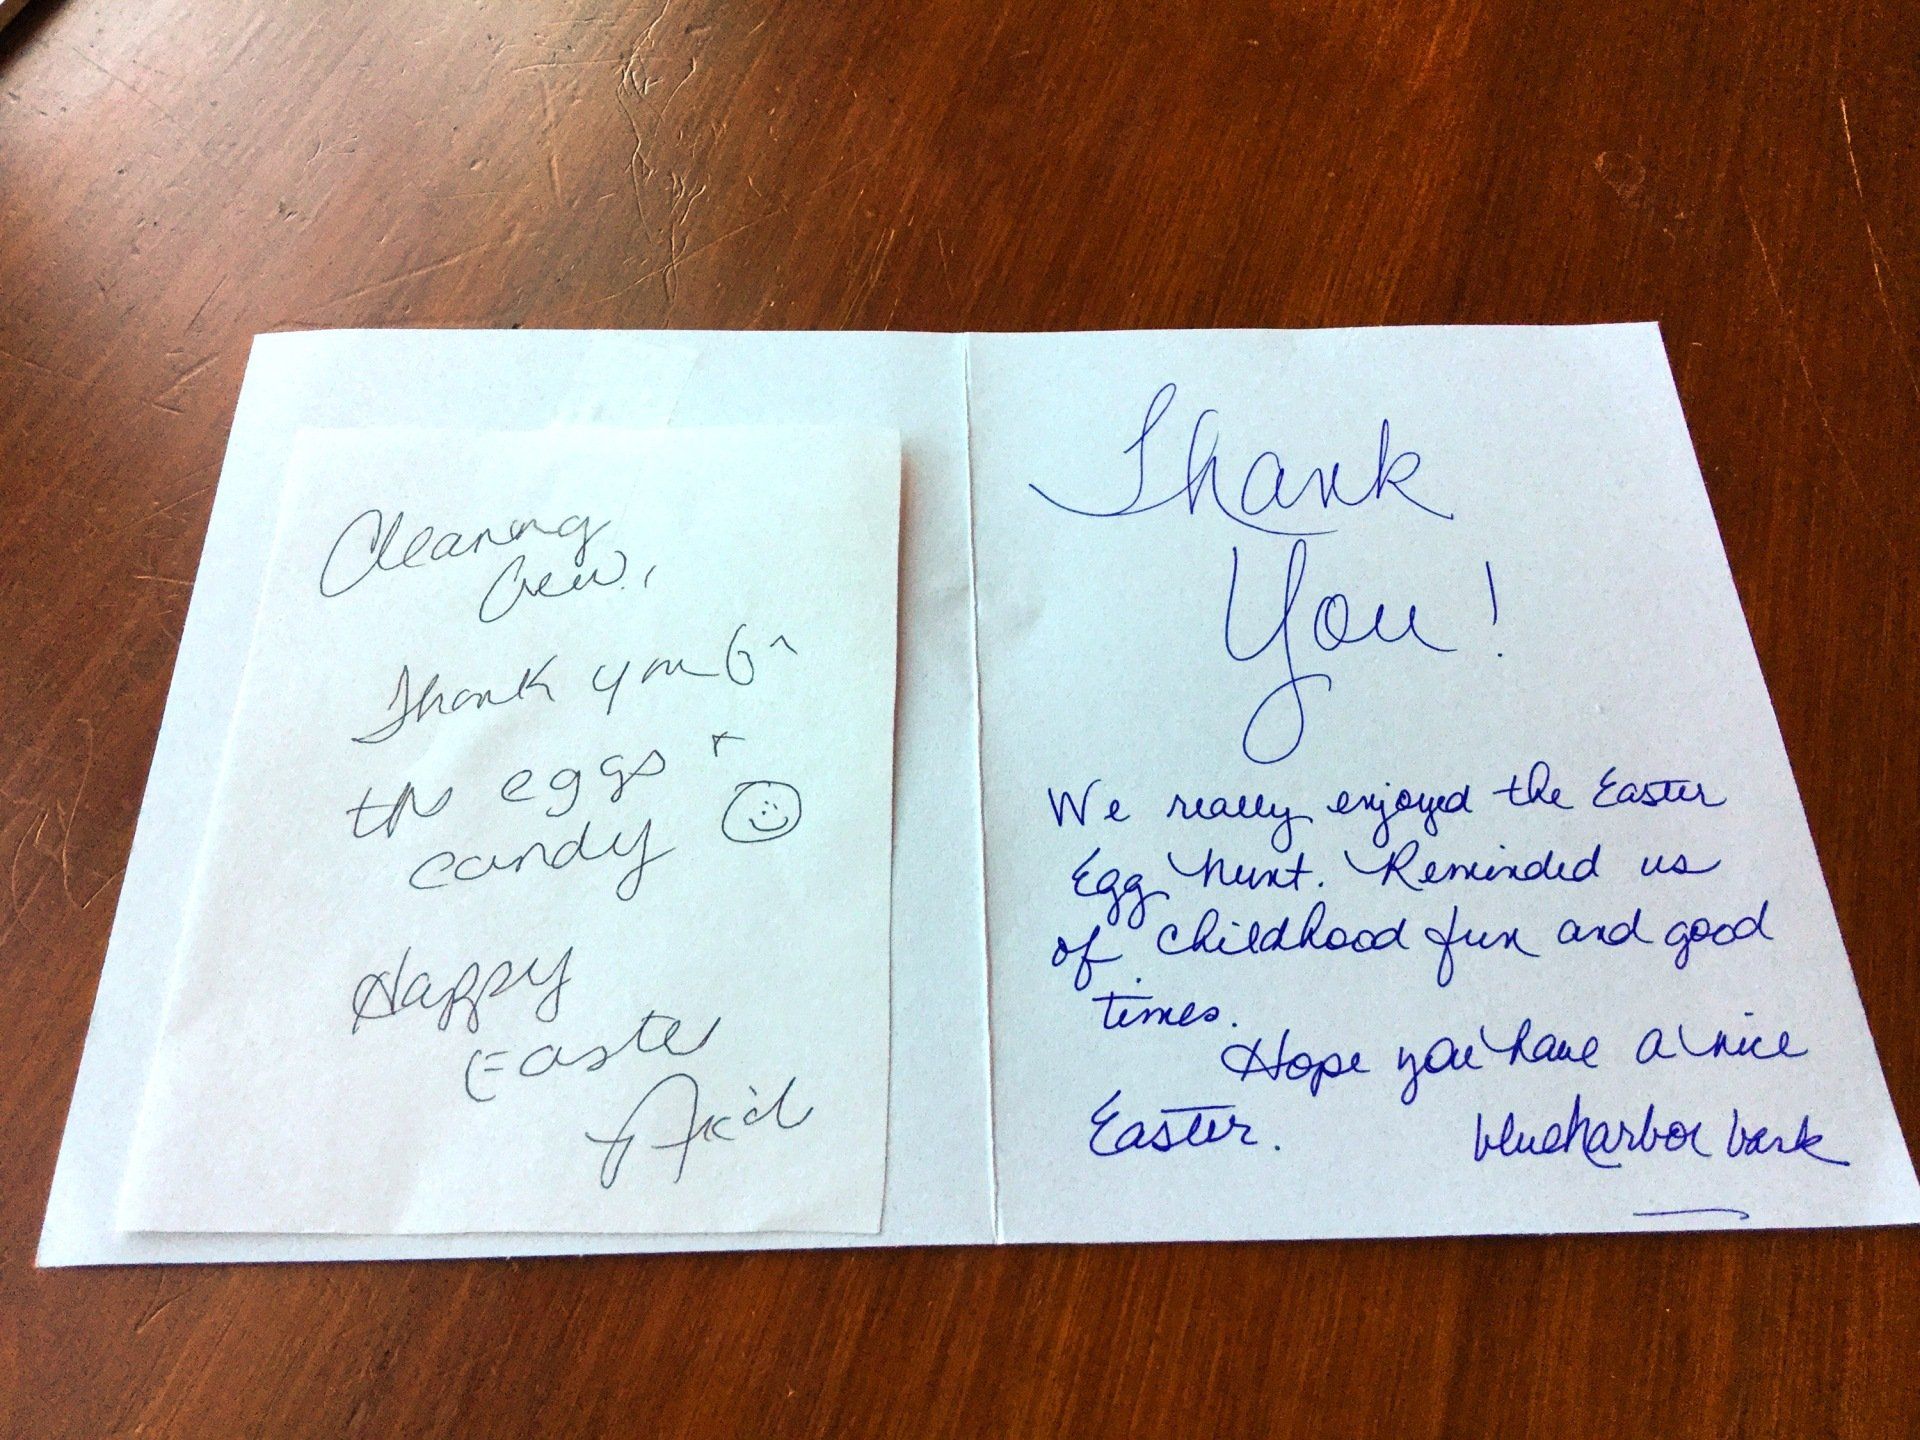 Cleaning
Crew,
Thank you for
the eggs +
candy
Happy
Easter
Thank
You!
We really enjoyed the Easter
Egg hunt. Reminded us
of childhood fun and good
times.
Hope you have a nice
Easter. blueharbor bank